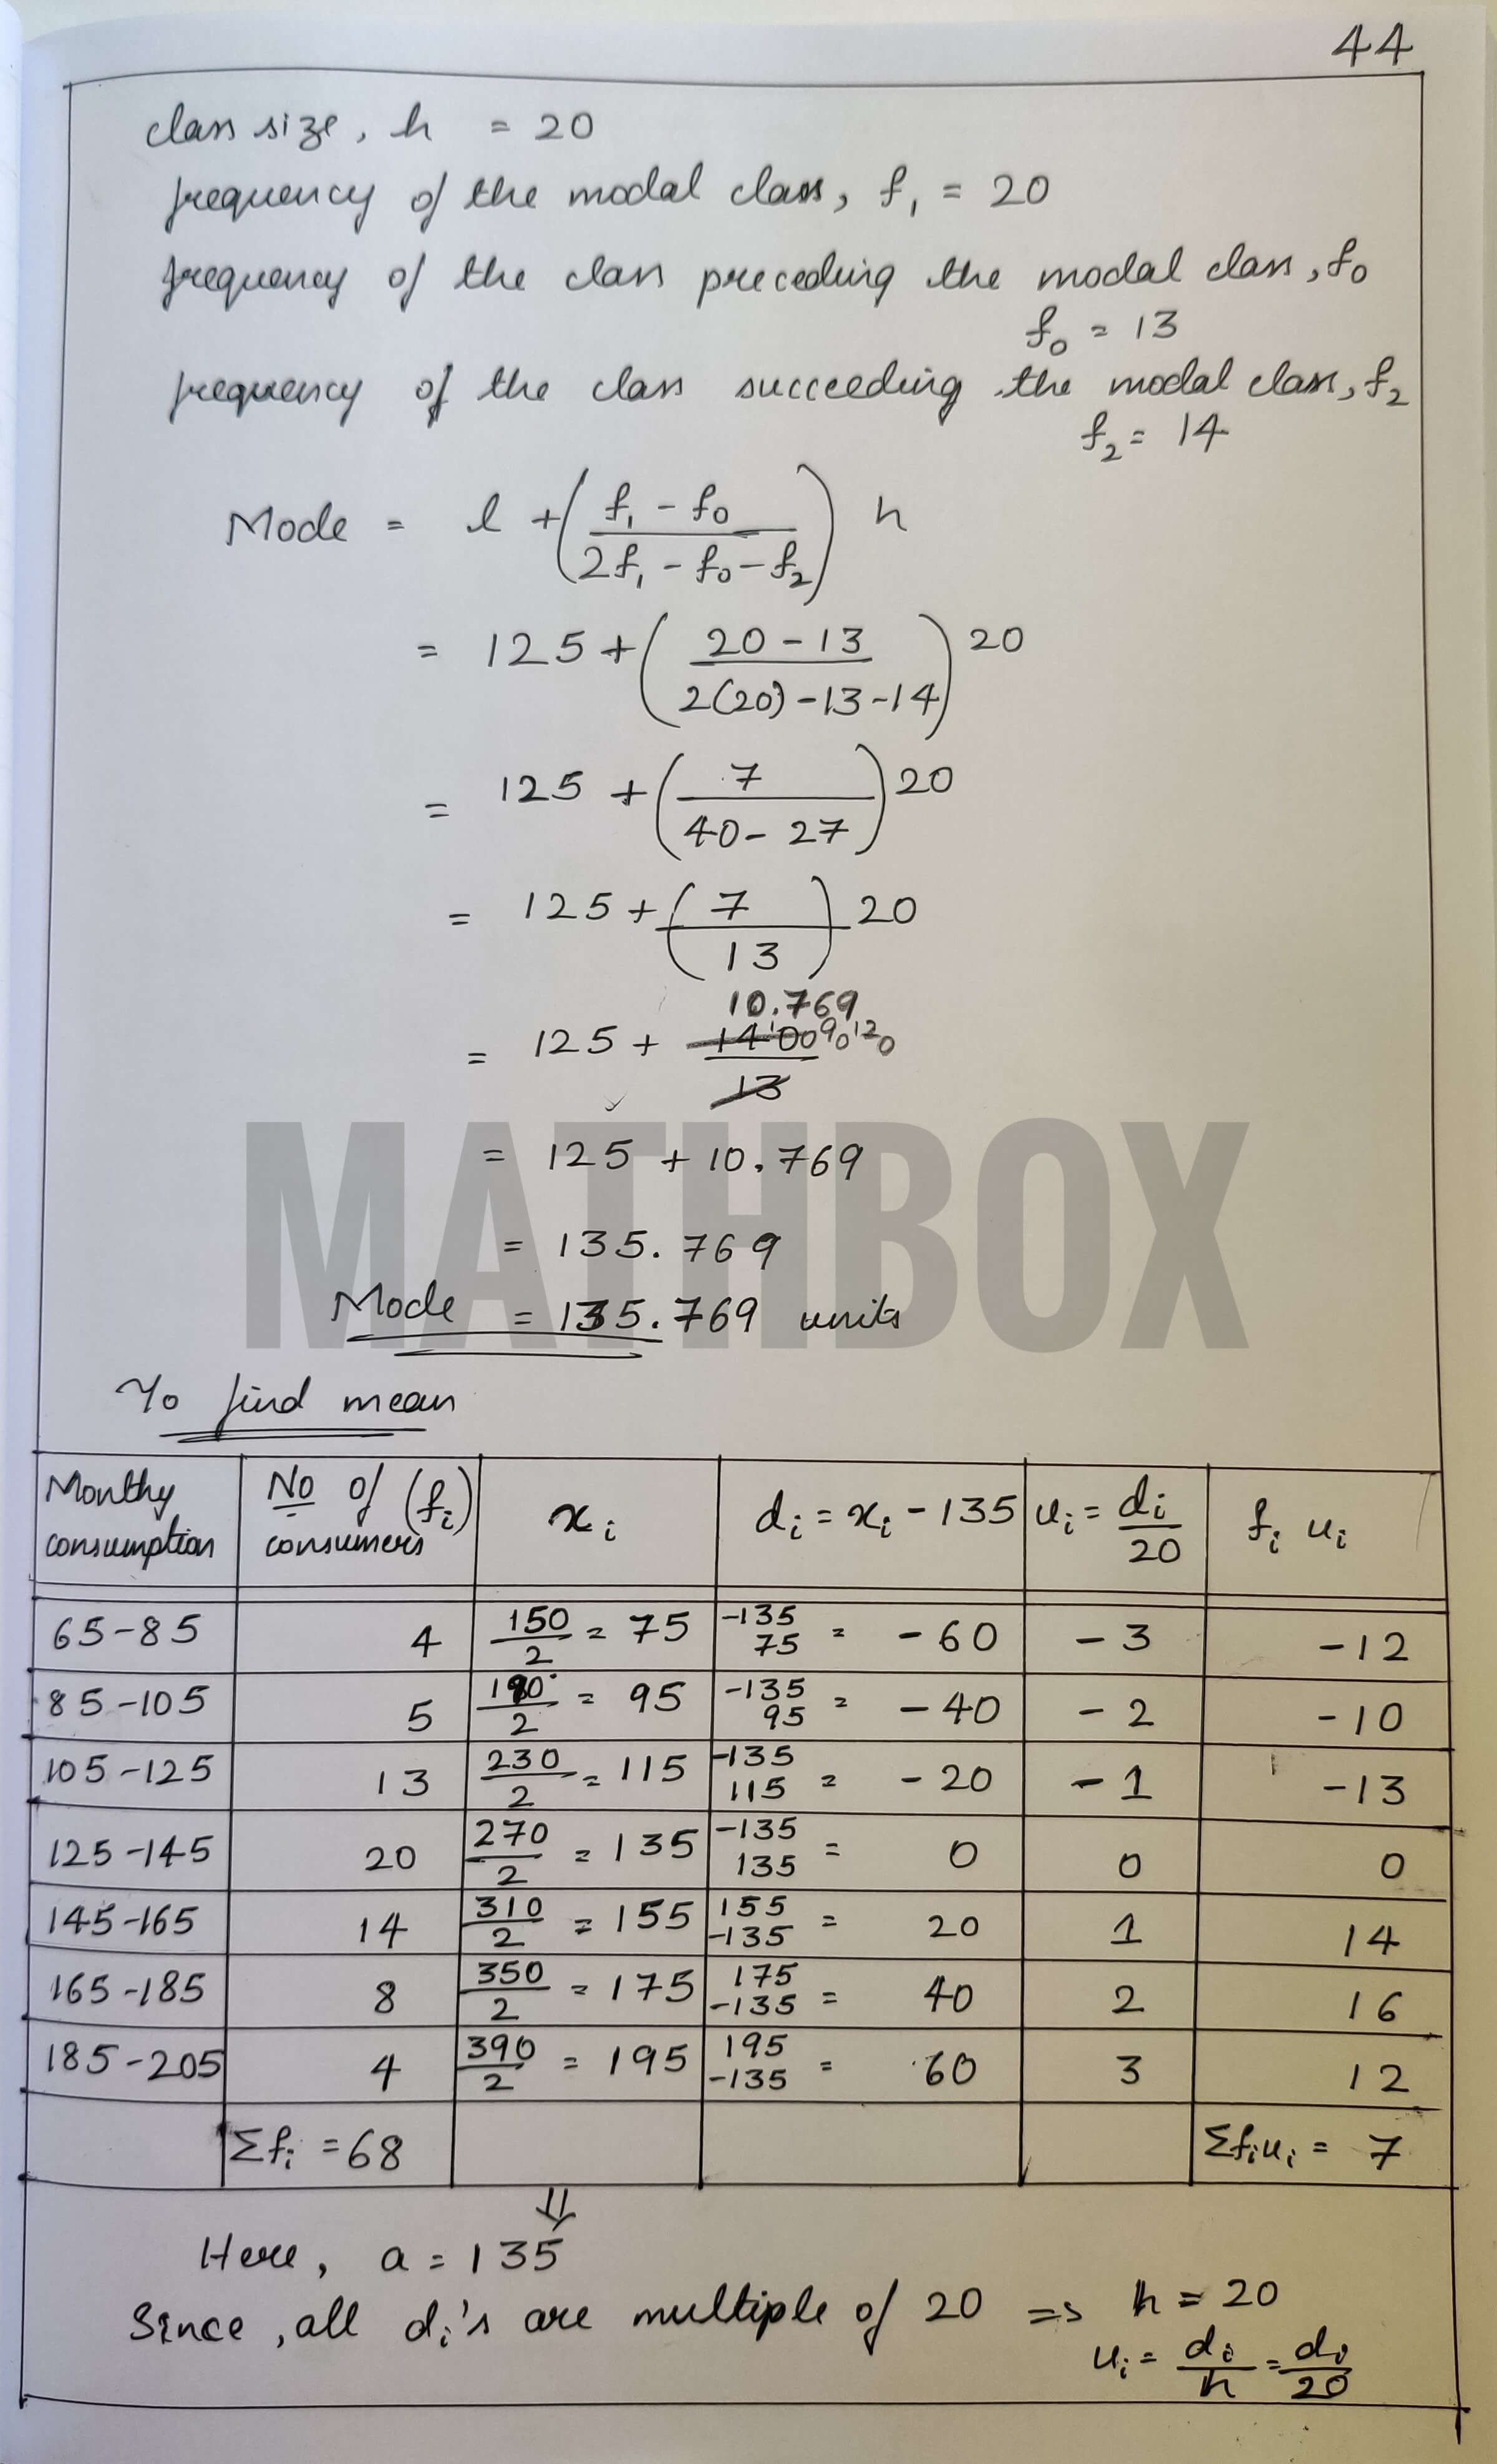 44
class size, h = 20
frequency of the modal class, f₁ = 20
frequency of the class preceding the modal class, f₀
f₀ = 13
frequency of the class succeeding the modal class, f₂
f₂ = 14
Mode = l + ( (f₁ - f₀) / (2f₁ - f₀ - f₂) ) h
= 125 + ( (20 - 13) / (2(20) - 13 - 14) ) 20
= 125 + ( 7 / (40 - 27) ) 20
= 125 + ( 7 / 13 ) 20
10.769
= 125 +
= 125 + 10.769
= 135.769
Mode = 135.769 units
MATHBOX
To find mean
Monthy consumption | No of consumers (fᵢ) | xᵢ | dᵢ = xᵢ - 135 | uᵢ = dᵢ/20 | fᵢ uᵢ
65-85 | 4 | 150/2 = 75 | -135 75 = -60 | -3 | -12
85-105 | 5 | 190/2 = 95 | -135 95 = -40 | -2 | -10
105-125 | 13 | 230/2 = 115 | -135 115 = -20 | -1 | -13
125-145 | 20 | 270/2 = 135 | -135 135 = 0 | 0 | 0
145-165 | 14 | 310/2 = 155 | 155 -135 = 20 | 1 | 14
165-185 | 8 | 350/2 = 175 | 175 -135 = 40 | 2 | 16
185-205 | 4 | 390/2 = 195 | 195 -135 = 60 | 3 | 12
Σfᵢ = 68 | Σfᵢuᵢ = 7
⇓
Here, a = 135
Since, all dᵢ's are multiple of 20 => h = 20
uᵢ = dᵢ/h = dᵢ/20